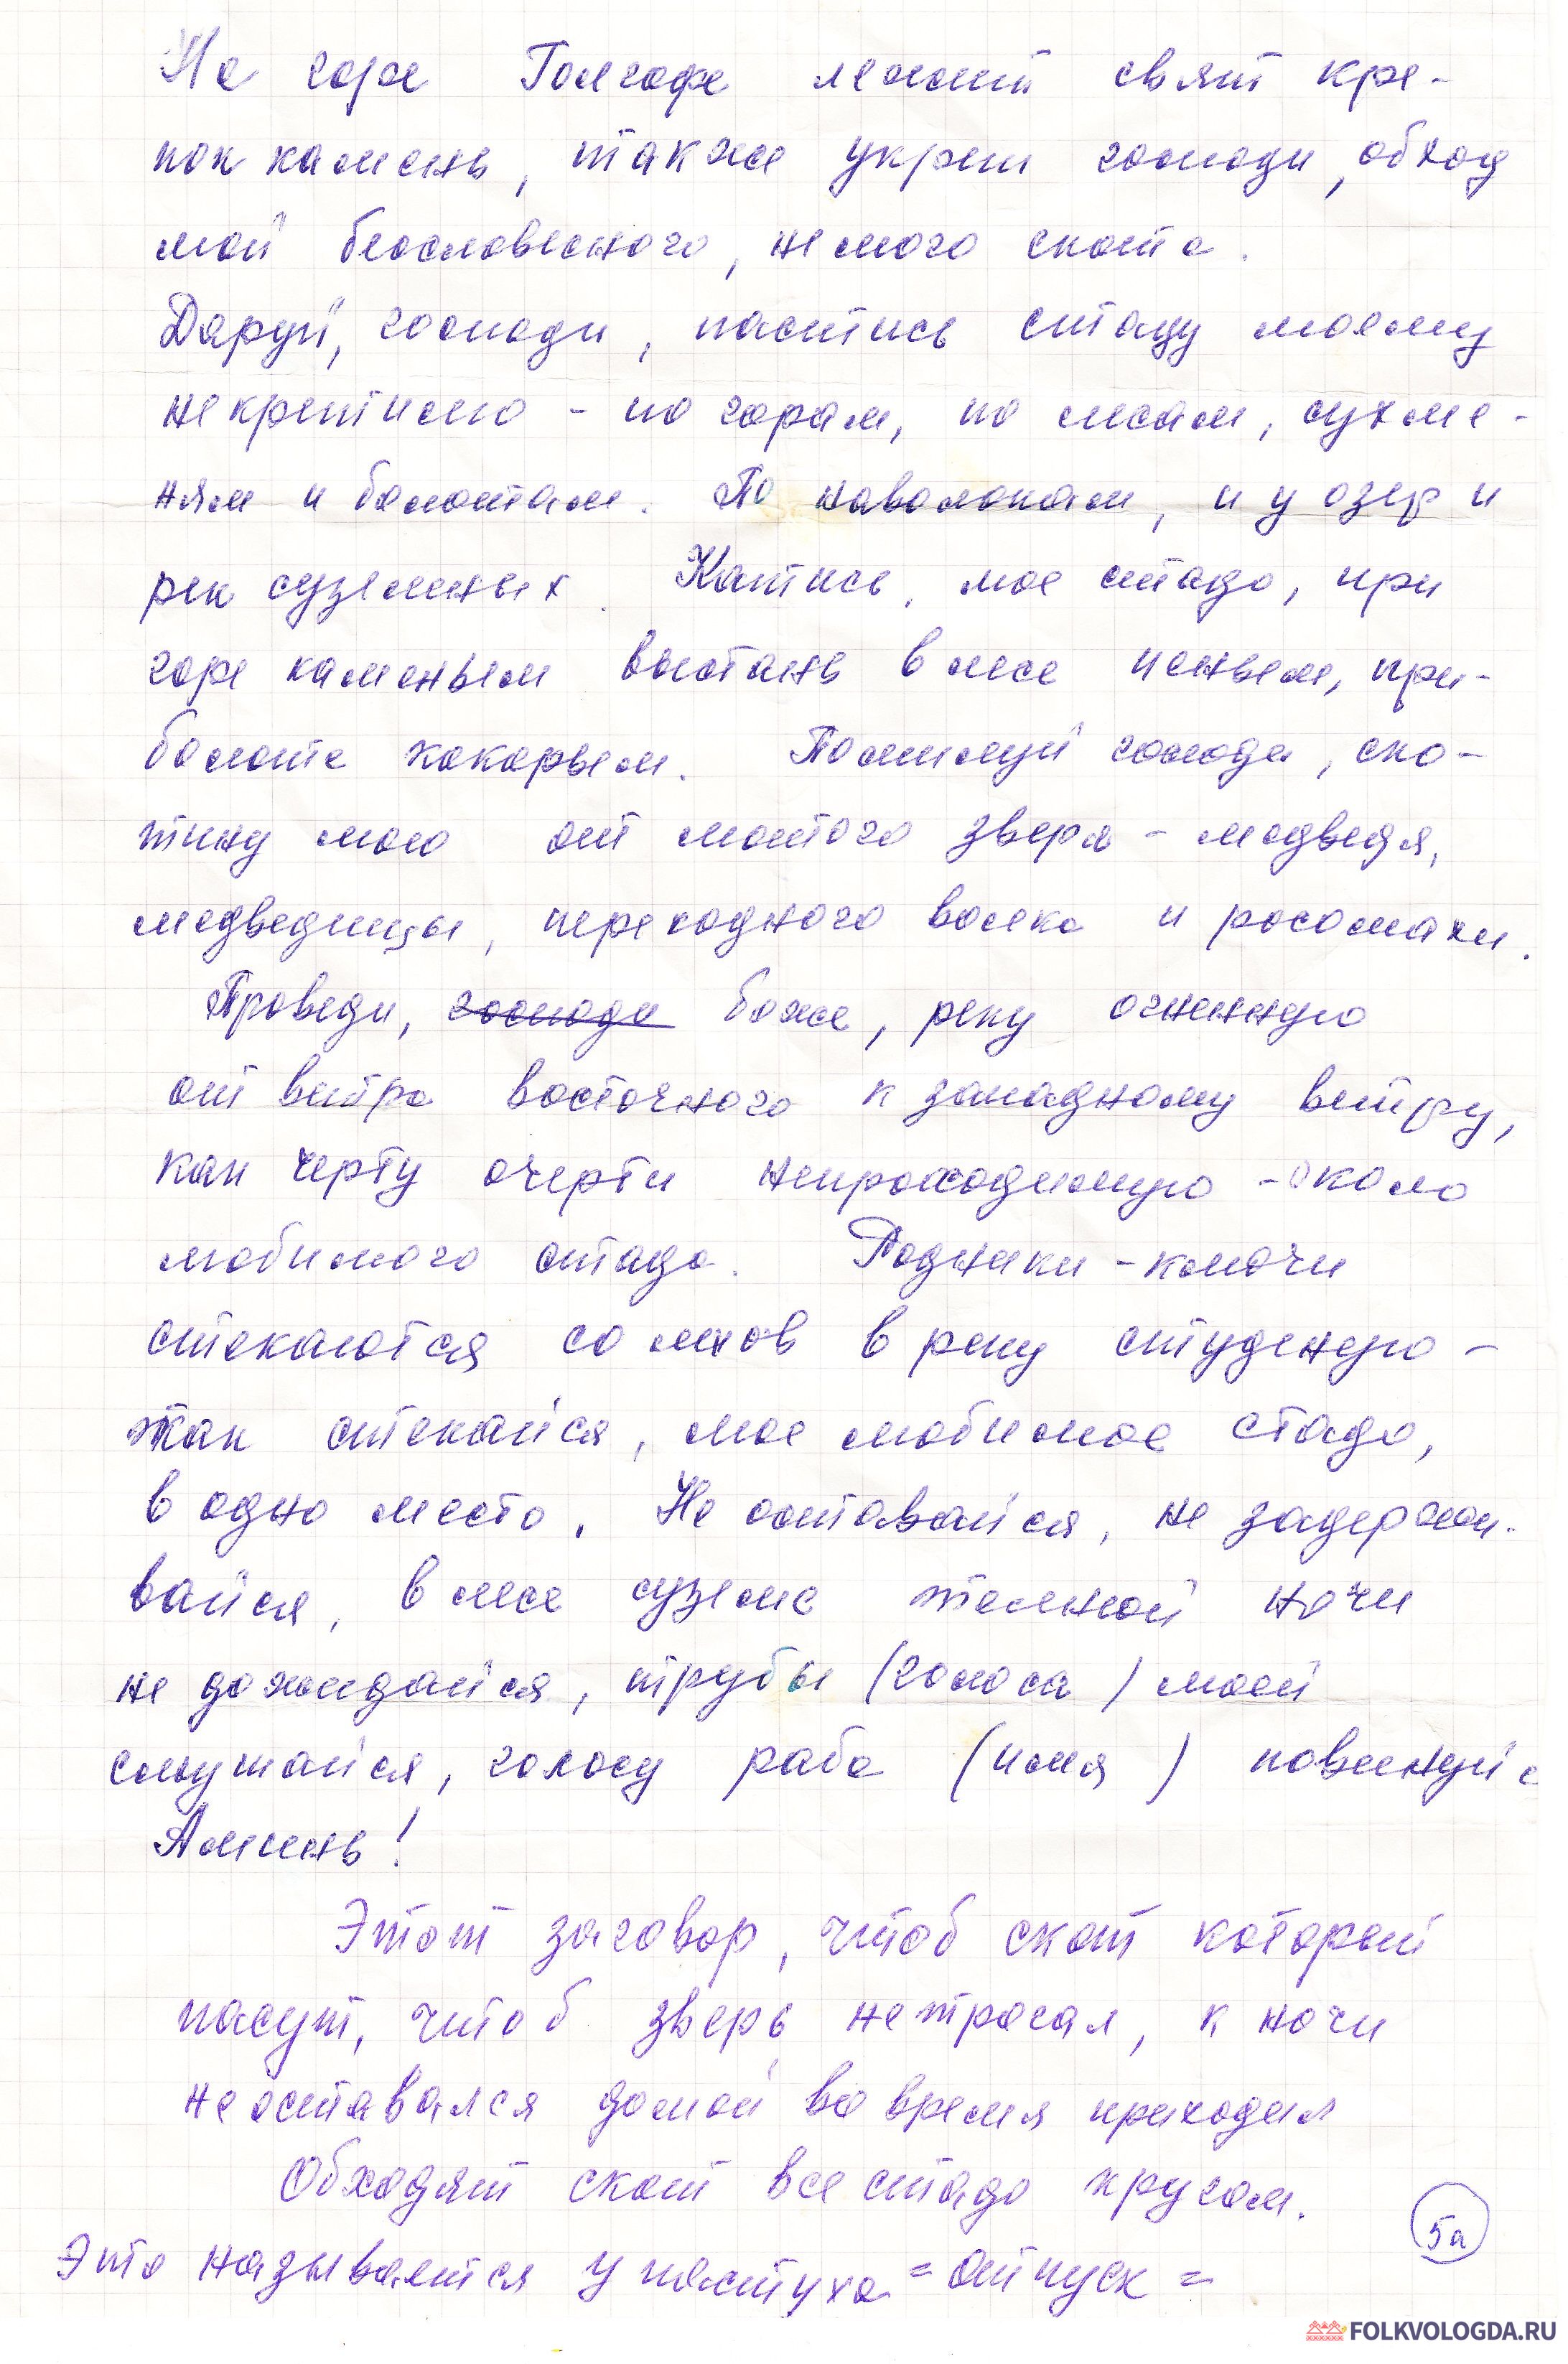 На горе Голгофе лежит свят кре-
пок камень, также укрепи господи, обход
мой беословесного, немого скота.
Даруй, господи, пастись стаду моему
некрептисто - по горам, по лесам, сухме-
ням и болотам. По наволокам, и у озер и
рек суземных. Катись, мое стадо, при
горе каменьем выстань в лесе пеньем, при-
болоте кокорьем. Помилуй господи, ско-
тину мою от лютого зверя - медведя,
медведицы, переходного волка и росомахи.
Проведи, господи боже, реку огненную
от ветра восточного к западному ветру,
как черту очерти непроходимую - около
любимого стада. Родники - ключи
стекаются со мхов в реку студеную -
так стекайся, мое любимое стадо,
в одно место. Не оставайся, не задержи-
вайся, в лесе суземе темной ночи
не дожидайся, трубы (голоса) моей
слушайся, голосу раба (имя) повинуйс
Аминь!
Этот заговор, чтоб скот который
пасут, чтоб зверь не трогал, к ночи
не оставался домой во время приходил
Обходят скот все стадо кругом.
5а
Это называется у пастуха = отпуск =
FOLKVOLOGDA.RU